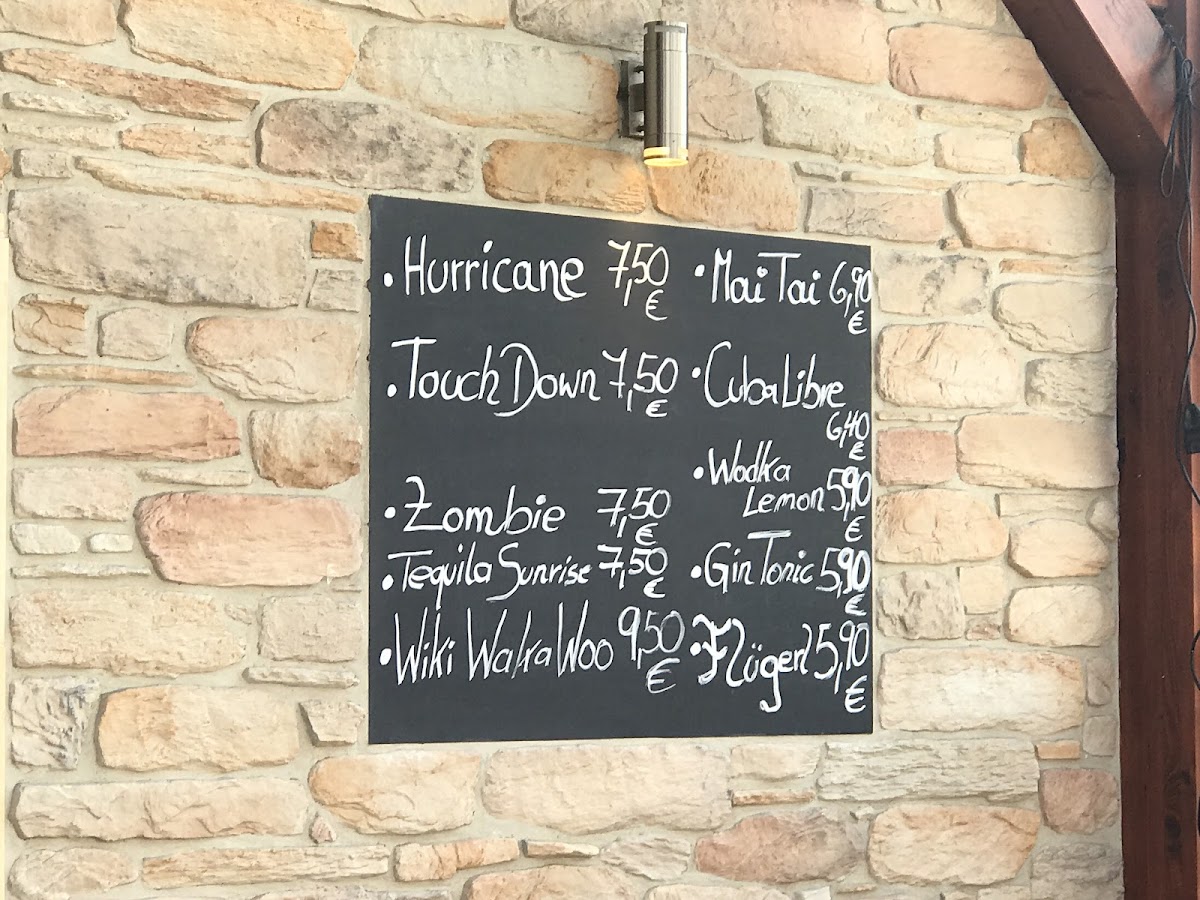 • Hurricane 7,50 €
• Touch Down 7,50 €
• Zombie 7,50 €
• Tequila Sunrise 7,50 €
• Wiki Waka Woo 9,50 €
• Mai Tai 6,90 €
• Cuba Libre
6,40 €
• Wodka
Lemon 5,90 €
• Gin Tonic 5,90 €
• Flügerl 5,90 €